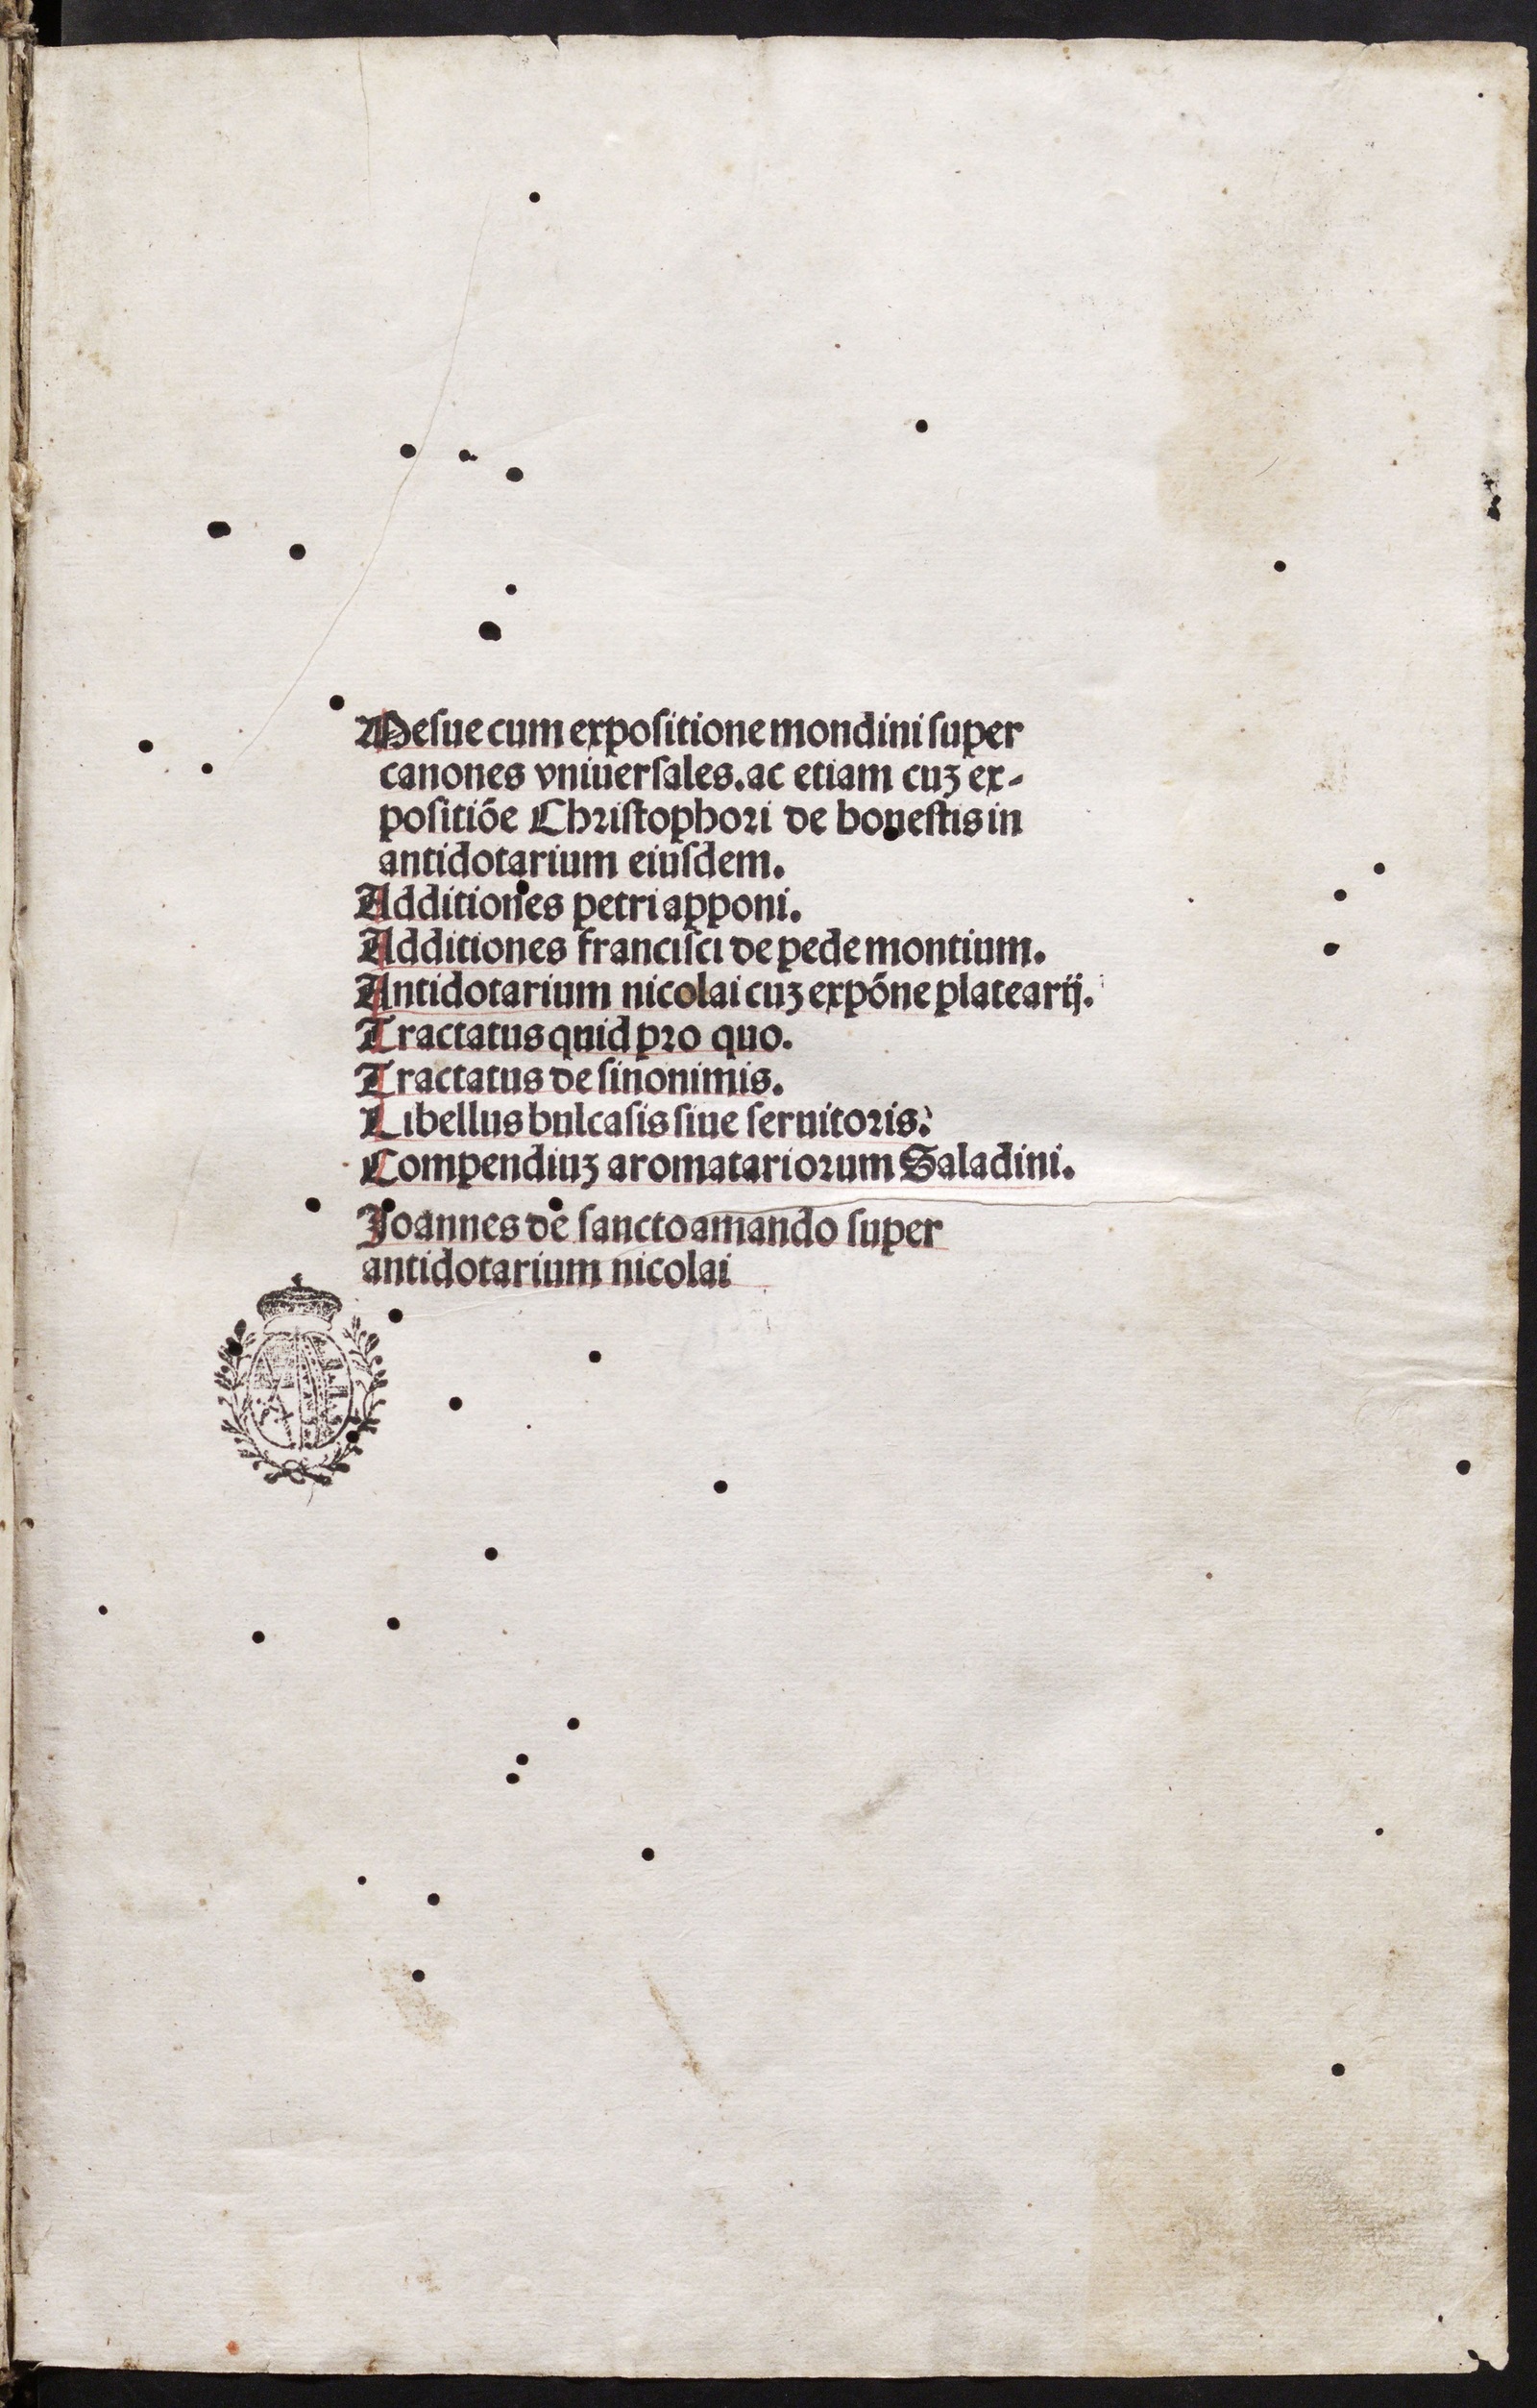 Mesue cum expositione mondini super
canones vniuersales. ac etiam cuȝ ex-
positiōe Christophori de honestis in
antidotarium eiusdem.
Additiones petri apponi.
Additiones francisci de pedemontium.
Antidotarium nicolai cuȝ expōne platearij.
Tractatus quid pro quo.
Tractatus de sinonimis.
Libellus bulcasis siue seruitoris.
Compendiuȝ aromatariorum Saladini.
Joannes de sancto amando super
antidotarium nicolai